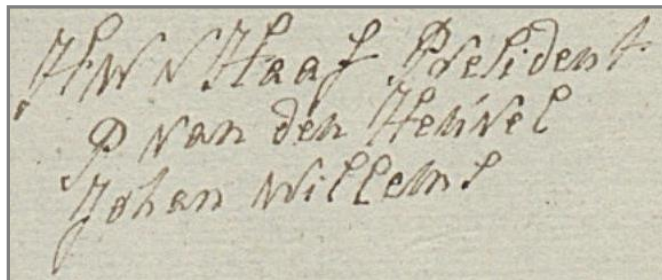 H W V Haaf President
P van den Heuvel
Johan Willems